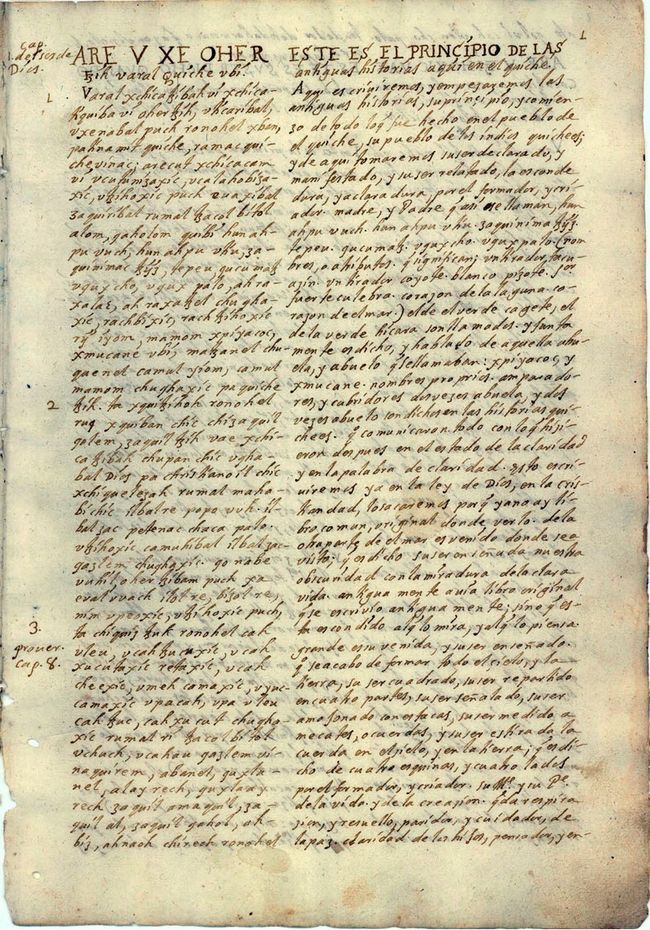 Cap.
de ser de
Dios.
1
ARE V XE OHER
tzih varal Quiche vbi.
Varal xchicatzibah vi xchica-
tiquiba vi oher tzih, vticaribal,
vxenabal puch ronohel xban,
pa tinamit quiche, ramac qui-
che vinac; arecut xchicacam
vi vcutunizaxic, vcalahobiza-
xic, vtzihoxic puch euaxibal
zaquiribal rumal tzacol bitol
alom, qaholom quibi hun ah-
pu vuch, hun ahpu vtiu, za-
quinimac tzyz, tepeu qucumatz
vqux cho, vqux palo, ah ra-
xa laz, ah raxa tzel chugha-
xic, rachbixic, rachtzihoxic
rij iyom, mamom xpiyacoc,
xmucane vbi, matzanel chu-
quenel camul iyom, camul
mamom chughaxic pa quiche
tzih. ta xquitzihoh ronohel
2
ruq xquiban chic chi zaquil
qolem, zaquil tzih vae xchi-
catzibah chupan chic vgha-
bal Dios pa christianoil chic
xchiquelezah rumal maha-
bi chic ilbal re popo vuh. il-
bal zac petenac chaca palo.
vtzihoxic camuhibal ilbal zac-
qazlem chughaxic. qo nabe
vuhil oher tzibam puch xa
eval vvach ilol re, bizol re,
nim vpeoxic, vtzihoxic puch,
ta chiquiz tzuk ronohel cah
3.
prover.
cap. 8.
vleu, vcah tzucuxic, vcah
xucutaxic retaxic, vcah
cheexic, vmeh camaxic, vyuc-
camaxic vpa cah, vpa vleu
cah tzuc, cah xucut chugha-
xic rumal ri tzacol bitol
vchuch, vcahau qazlem vi-
naquirem, abanel, quxla-
nel, alay rech, quxlaay
rech zaquil amaquil, za-
quil al, zaquil qahol, ah-
biz, ahnaoh chirech ronohel
1
ESTE ES EL PRINCIPIO DE LAS
antiguas historias aqui en el quiche.
Aqui escriviremos, y empezaremos las
antiguas historias, su prinsipio, y comien-
zo de todo lo q̃ fue hecho en el pueblo de
el quiche, su pueblo de los indios quichees;
y de aqui tomaremos su ser declarado, y
manifestado, y su ser relatado, la esconde
dura, y aclaradura por el formador, y cri-
ador. madre, y Padre q̃ asi se llaman, hun
ahpu vuch. hun ahpu vtiu. zaquinimatzyz.
tepeu. qucumatz. vqux cho. vqux palo. (nom
bres, o atributos. q̃ significan; vn tirador, tacu-
azin. vn tirador coyote. blanco pizote. for
fuerte culebra. corazon de la laguna. co-
razon de el mar.) el de el verde cagete, el
de la verde hicara son llamados. y junta
mente es dicho, y hablado de aquella abu-
ela, y abuelo q̃ se llamaban: xpiyacoc, y
xmucane. nombres proprios. amparado-
res, y cubridores dos vezes abuela, y dos
vezes abuelo son dichos en las historias qui-
chees. q̃ comunicaron todo con lo q̃ hisi-
eron despues en el estado de la claridad
y en la palabra de claridad. Esto escri-
viremos ya en la ley de Dios, en la cris-
tiandad, lo sacaremos por q̃ ya no ay li-
bro comun, original donde verlo. de la
otra parte de el mar es venido donde se e
visto; q̃ es dicho su ser enseñada nuestra
obscuridad con la miradura de la clara
vida. Antigua mente auia libro original
q̃ se escrivio antigua mente; sino q̃ es-
ta escondido al q̃ lo mira, y al q̃ lo piensa.
grande es su venida, y su ser enseñado.
q̃ se acabo de formar todo el cielo, y la
tierra, su ser cuadrado, su ser repartido
en cuatro partes, su ser señalado, su ser
amojonado con estacas, su ser medido a
mecates, o cuerdas, y su ser estirada la
cuerda en el sielo, y en la tierra; q̃ es di-
cho de cuatro esquinas, y cuatro lados
por el formador, y criador. su Mᵉ. y su Pᵉ.
de la vida. y de la creasion. q̃ da respira-
sion, y resuello, paridor, y cuidador, de
la paz. claridad de los hijos, pensador, y en-